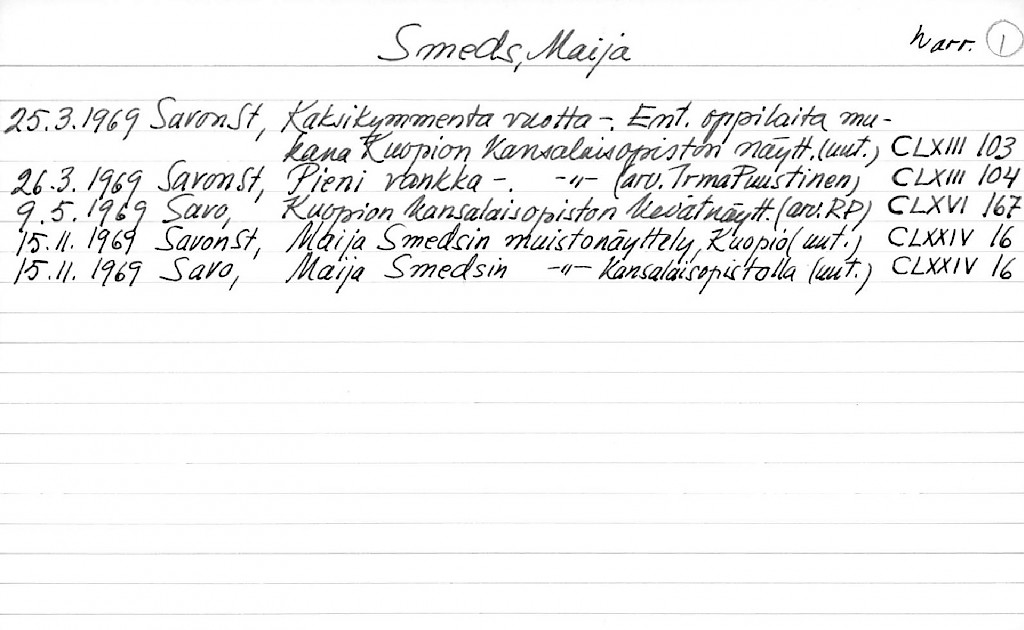 Smeds, Maija
harr. 1
25.3.1969 SavonSt, Kaksikymmentä vuotta -. Ent. oppilaita mu-
kana Kuopion Kansalaisopiston näytt. (uut.) CLXIII 103
26.3.1969 SavonSt, Pieni vankka -. -"- (arv. Irma Puustinen) CLXIII 104
9.5.1969 Savo, Kuopion kansalaisopiston kevätnäytt. (arv. RP) CLXVI 167
15.11.1969 SavonSt, Maija Smedsin muistonäyttely, Kuopio (uut.) CLXXIV 16
15.11.1969 Savo, Maija Smedsin -"- Kansalaisopistolla (uut.) CLXXIV 16